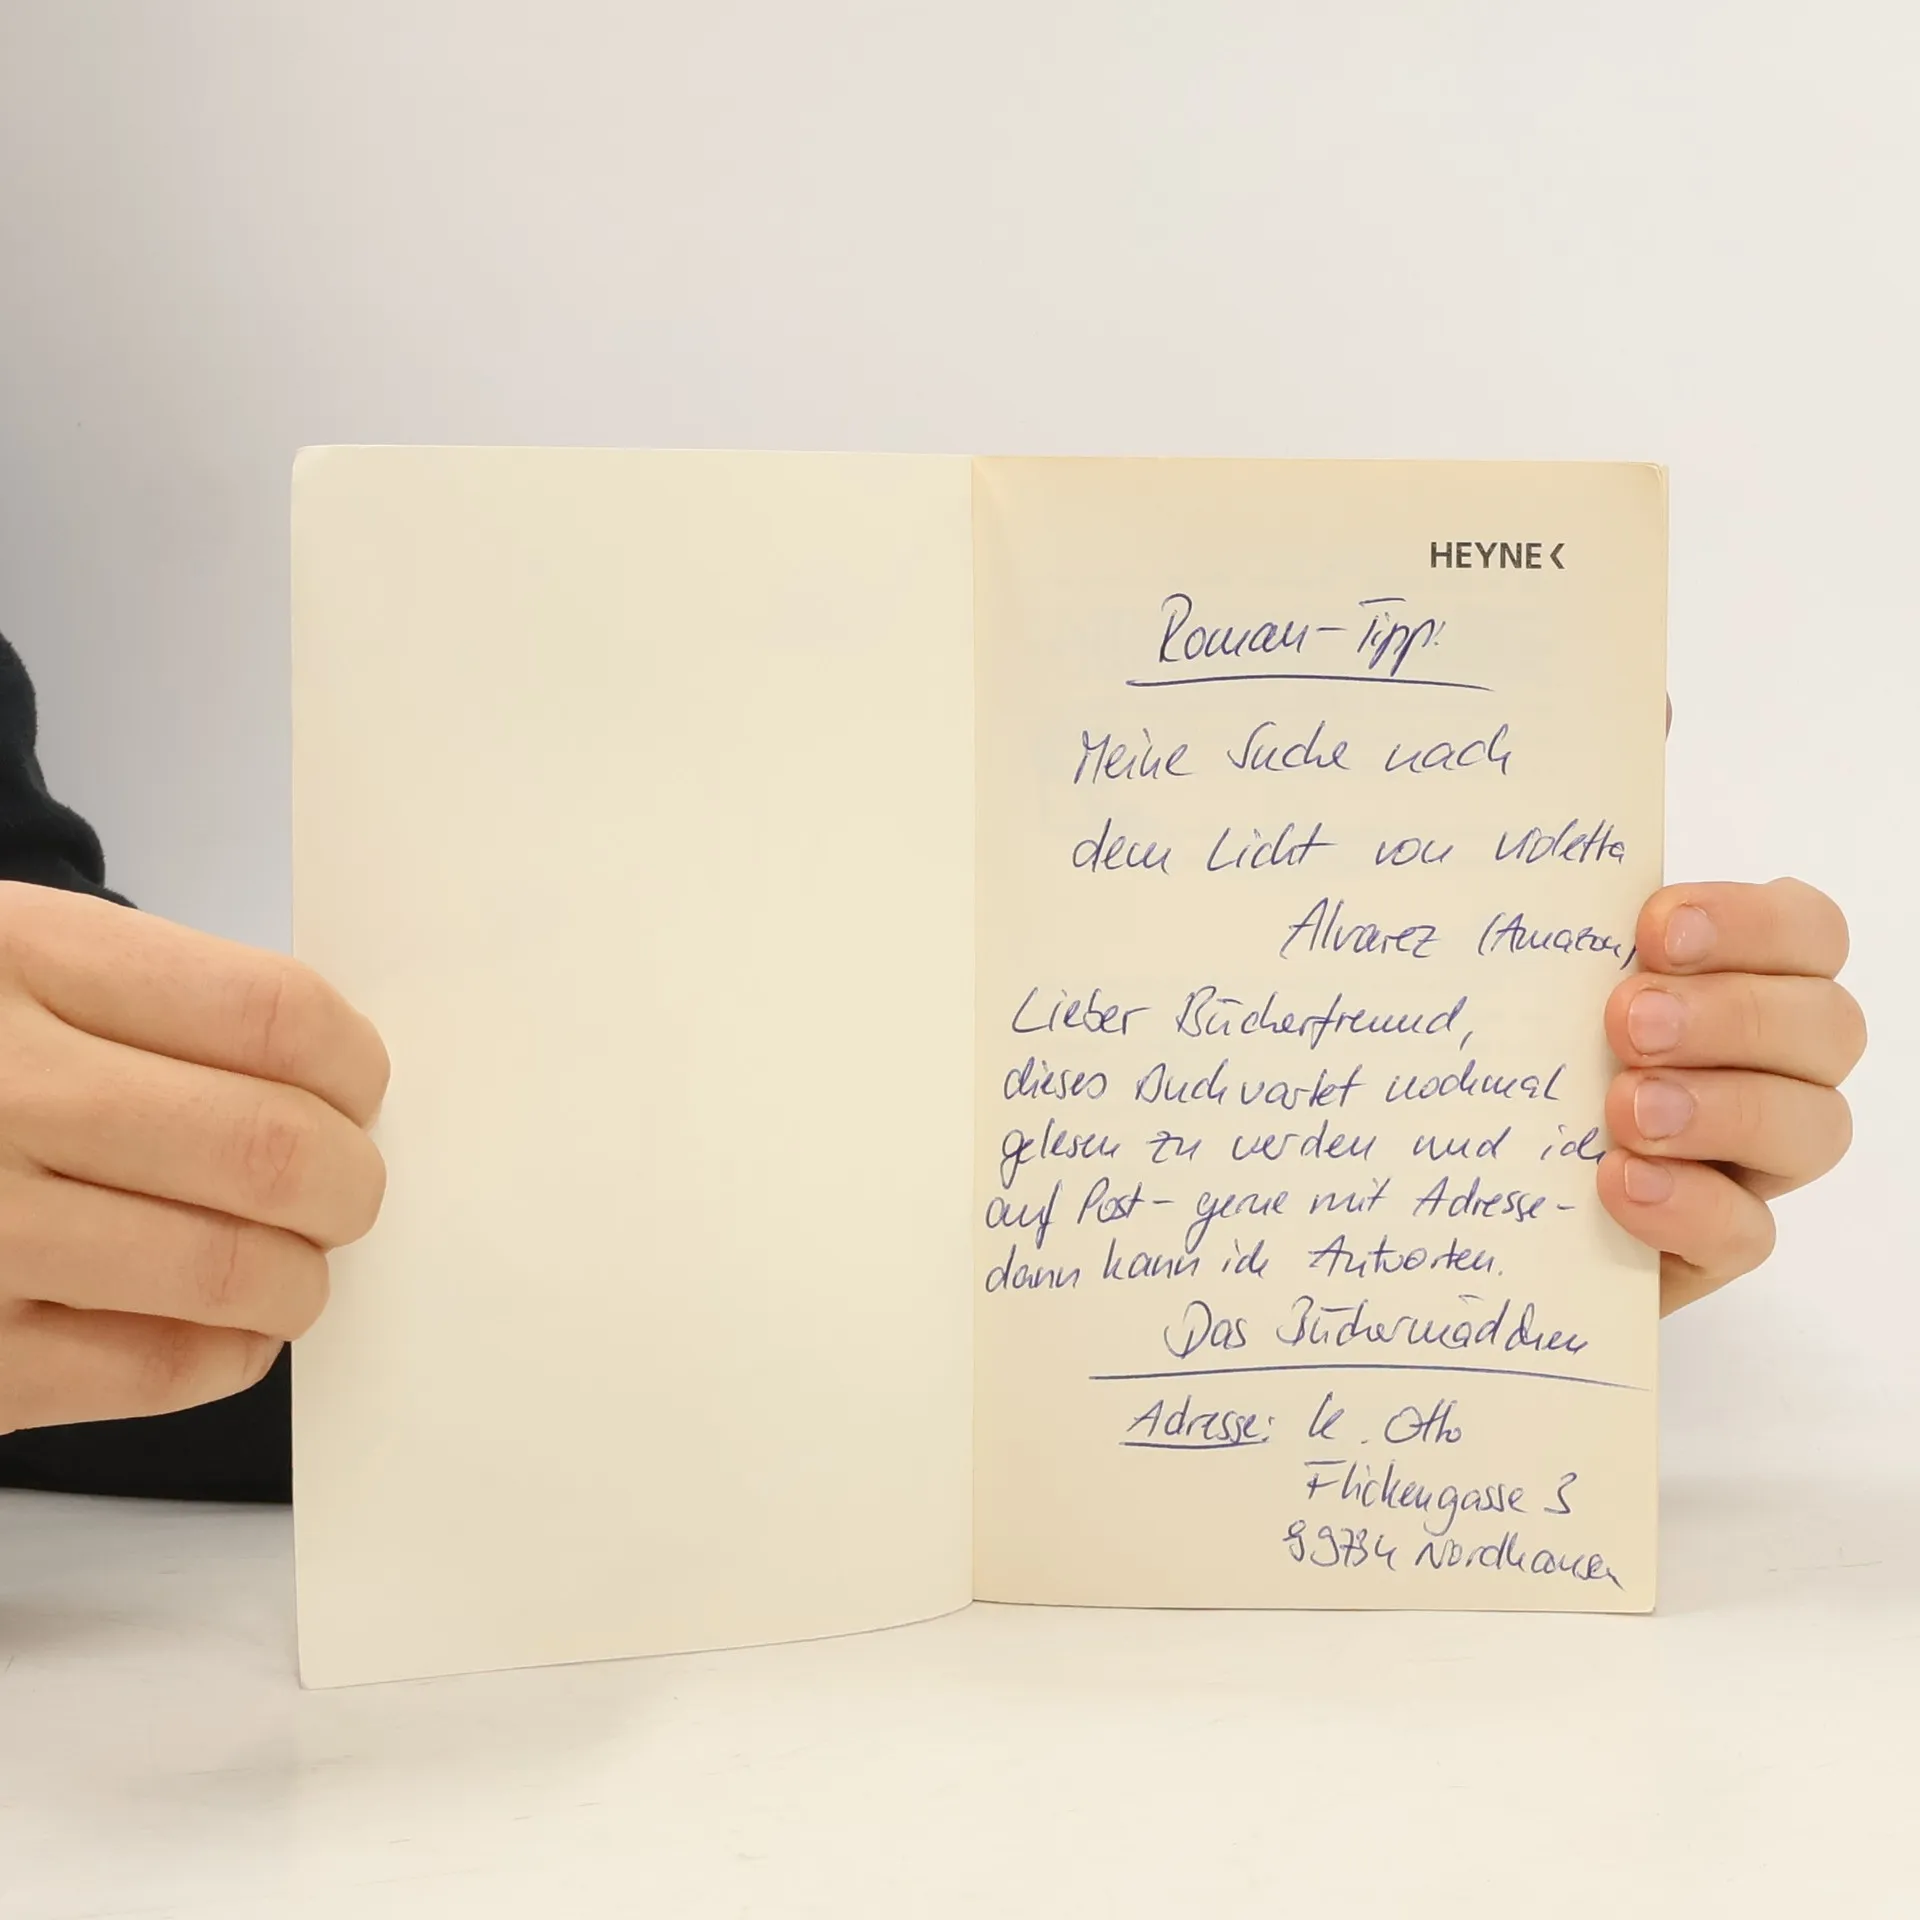 HEYNE<
Roman-Tipp:
Meine Suche nach
dem Licht von Violetta
Alvarez (Amazon)
Lieber Bücherfreund,
dieses Buch wartet nochmal
gelesen zu werden und ich
auf Post- gerne mit Adresse-
dann kann ich Antworten.
Das Büchermädchen
Adresse: K. Otto
Flickengasse 3
99734 Nordhausen